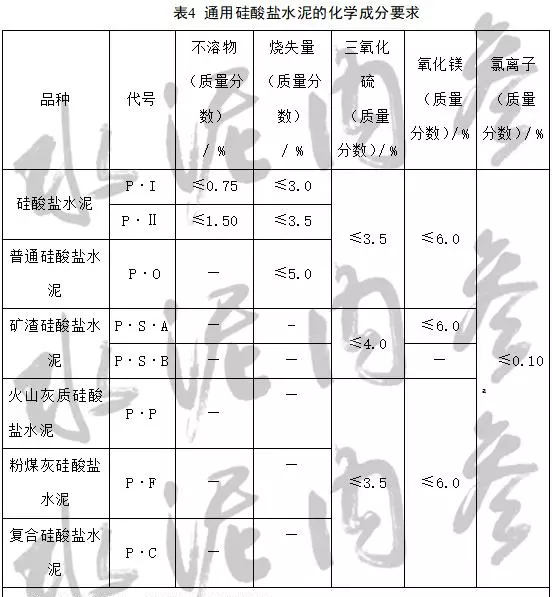 表4 通用硅酸盐水泥的化学成分要求
品种
代号
不溶物
（质量分
数）
/ %
烧失量
（质量分
数）
/ %
三氧化
硫
（质量
分数）/ %
氧化镁
（质量
分数）/ %
氯离子
（质量
分数）/ %
硅酸盐水泥
P·I
≤0.75
≤3.0
P·Ⅱ
≤1.50
≤3.5
≤3.5
≤6.0
普通硅酸盐水
泥
P·O
—
≤5.0
矿渣硅酸盐水
泥
P·S·A
—
-
≤4.0
≤6.0
P·S·B
—
—
—
≤0.10
a
火山灰质硅酸
盐水泥
P·P
—
—
粉煤灰硅酸盐
水泥
P·F
—
—
≤3.5
≤6.0
复合硅酸盐水
泥
P·C
—
—
水泥内参
水泥内参
水泥内参